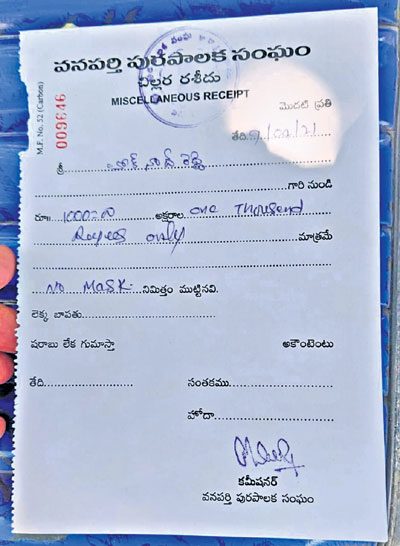 వనపర్తి పురపాలక సంఘం
చిల్లర రశీదు
MISCELLANEOUS RECEIPT
M.F. No. 52 (Carbon)
009646
మొదటి ప్రతి
తేది
శ్రీ
గారి నుండి
రూ॥ 1000=00 అక్షరాల one Thousand
Rupees only మాత్రమే
No Mask నిమిత్తం ముట్టినవి.
లెక్క బాపతు
షరాబు లేక గుమాస్తా అకౌంటెంటు
తేది సంతకము
హోదా
కమీషనర్
వనపర్తి పురపాలక సంఘం